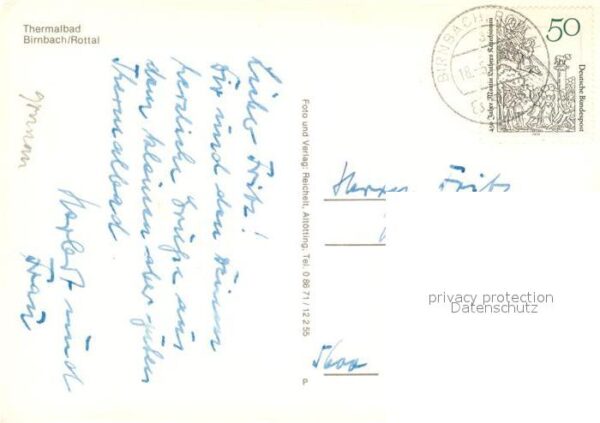 Thermalbad
Birnbach/Rottal
Lieber Fritz!
Dir und den Deinen
herzliche Grüße aus
dem kleinen aber guten
Thermalbad
Herbert und
Frau
Foto und Verlag: Reichelt, Altötting, Tel. 0 86 71 / 12 2 55
a.
BIRNBACH, ROTT
18.
50
Deutsche Bundespost
Herrn Fritz
5600
privacy protection
Datenschutz